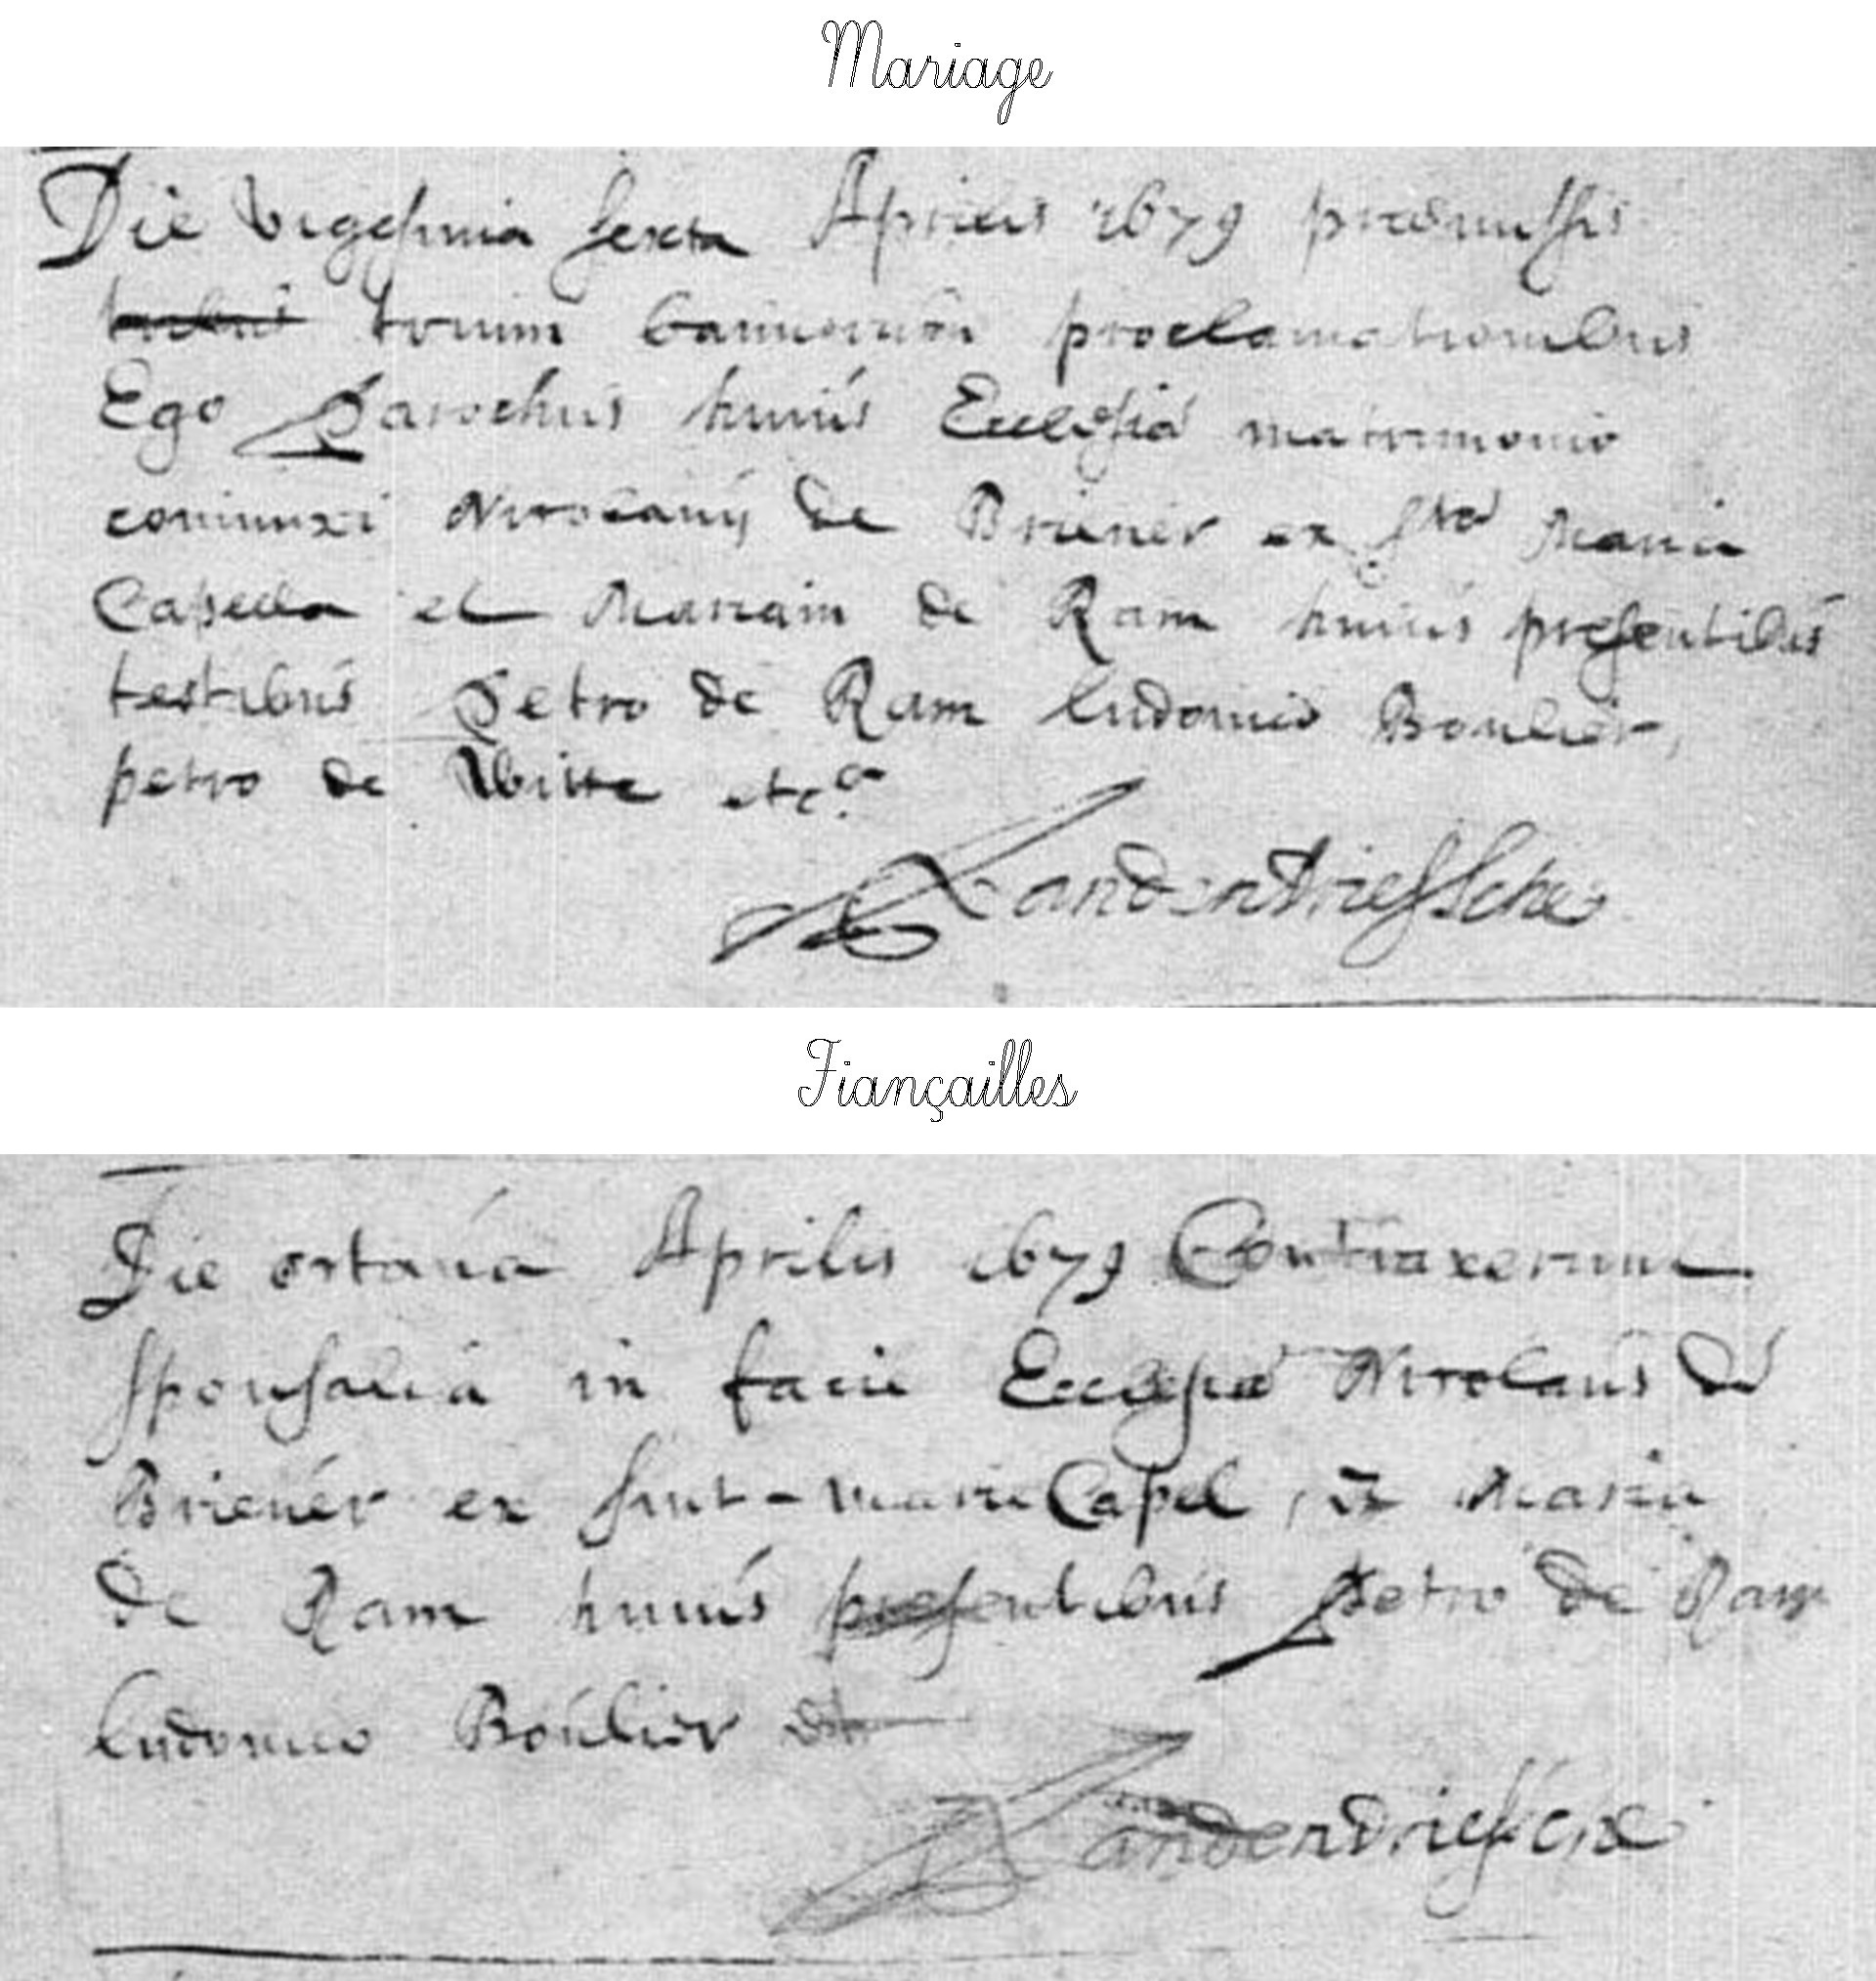 Mariage
Die vigesima sexta Aprilis 1679 praemissis
trium bannorum proclamationibus
Ego Parochus huius Ecclesiae matrimonio
coniunxi Nicolaum de Briener ex Sta Maria
Capella et Mariam de Ram huius presentibus
testibus Petro de Ram Ludovico Boulier,
petro de Witte etca
Vandendriessche
Fiançailles
Die octava Aprilis 1679 Contraxerunt
sponsalia in facie Ecclesiae Nicolaus de
Briener ex sint-marie Capel, et Maria
de Ram huius presentibus Petro de Ram
Ludovico Boulier
Vandendriessche